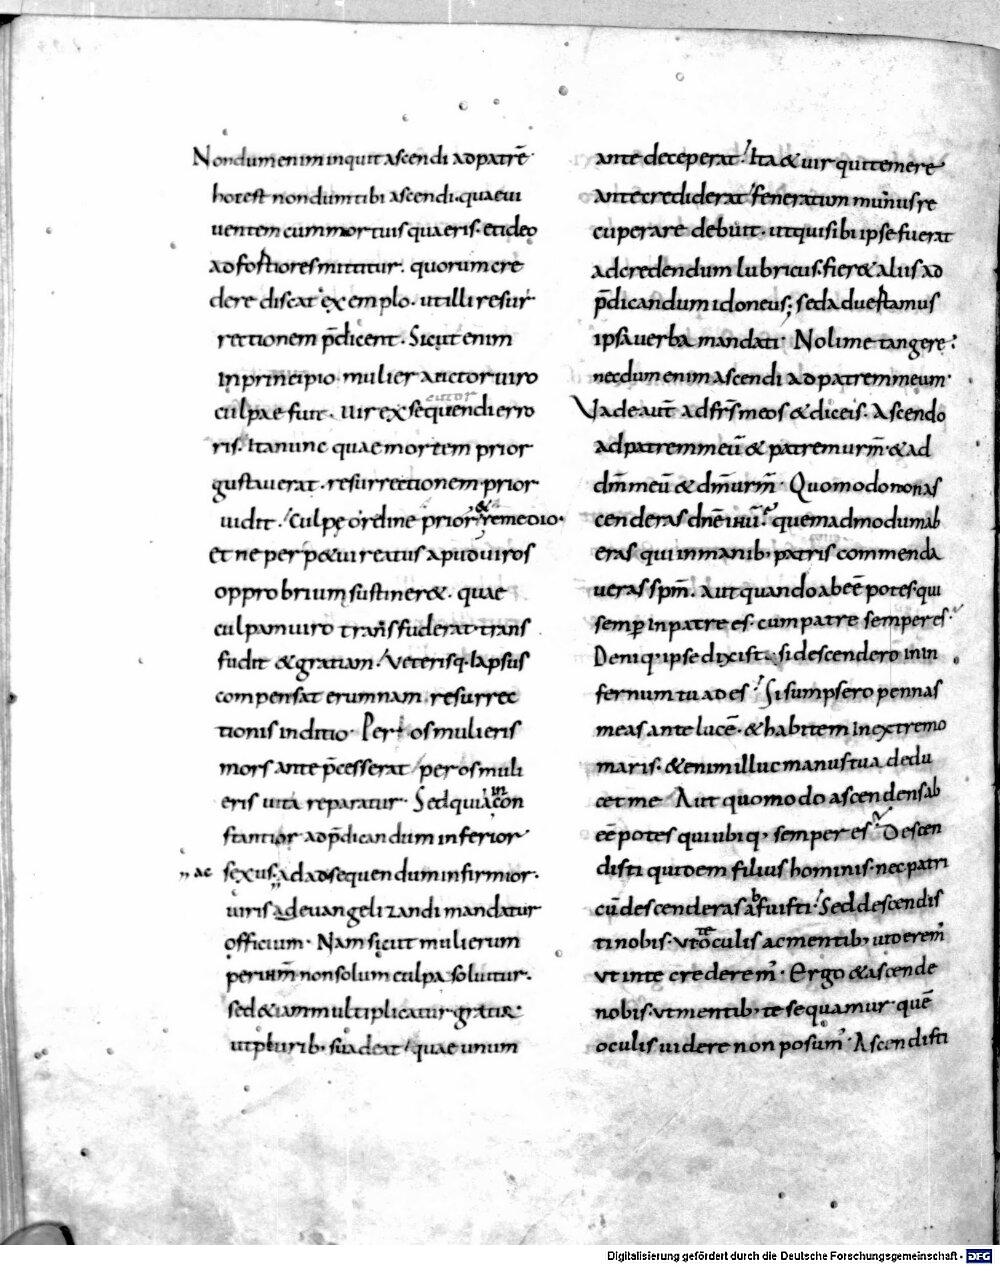 Nondum enim inquit ascendi ad patrē·
hoc est non dum tibi ascendi. quae ui
uentem cum mortuis quaeris. et ideo
ad fortiores mittitur. quorum cre
dere discat exemplo. ut illi resur
rectionem p̄dicent. Sicut enim
in principio mulier auctor uiro
culpae fuit. uir exsequendi erro
ris. Ita nunc quae mortem prior
gustauerat. resurrectionem prior
uidit. culpę ordine prior & remedio.
et ne perp&ui reatus apud uiros
opprobrium sustiner&. quae
culpam uiro transfuderat. trans
fudit & gratiam. Veterisq. lapsus
compensat erumnam. resurrec
tionis indicio. Per os mulieris
mors ante p̄cesserat. per os muli
eris uita reparatur. Sed quia in con
stantior ad p̄dicandum inferior
,, ac sexus. ad adsequendum infirmior.
uiris ad euangelizandi mandatur
officium. Nam sicut mulierum
per ihm̄ non solum culpa soluitur.
sed & iam multiplicatur gratia.
ut plurib. suadeat. quae unum
ante deceperat. Ita & uir qui temere
ante crediderat feneratum munus re
cuperare debuit. ut qui sibi ipse fuerat
ad credendum lubricus. fier& aliis ad
p̄dicandum idoneus; sed aduertamus
ipsa uerba mandati. Noli me tangere?
necdum enim ascendi ad patrem meum.
Vade aut̄ ad fr̄s meos & dic eis. Ascendo
ad patrem meū & patrem ur̄m & ad
dm̄ meū & dm̄ ur̄m. Quomodo non as
cenderas dnē ihū. quem ad modum ab
eras qui in manib; patris commenda
ueras sp̄m. Aut quando abeē potes. qui
semp̄ in patre es. cum patre semper es.
Deniq. ipse dixisti. si descendero in in
fernum tu ades. Si sumpsero pennas
meas ante lucē. & habitem in extremo
maris. & enim illuc manus tua dedu
cet me. Aut quomodo ascendens ab
eē potes qui ubiq; semper es. Descen
disti quidem filius hominis. nec patri
cū descenderas abfuisti. Sed descendis
ti nobis. ut te oculis ac mentib; uiderem̄
ut in te crederem̄. Ergo & ascende
nobis. ut mentib; te sequamur. quē
oculis uidere non posum̄. Ascendisti
Digitalisierung gefördert durch die Deutsche Forschungsgemeinschaft - DFG